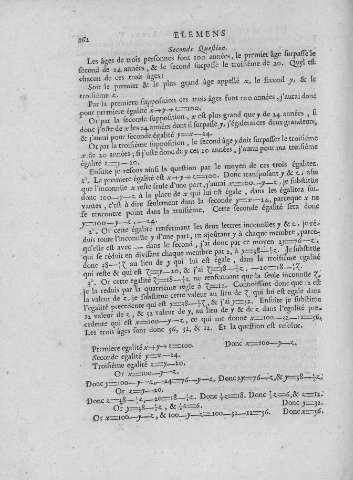 262 ELEMENS
Seconde Question.
Les âges de trois personnes font 100 années, le premier âge surpasse le
second de 24 années, & le second surpasse le troisième de 20. Quel est
chacun de ces trois âges?
Soit le premier & le plus grand âge appellé x, le second y, & le
troisième z.
Par la premiere supposition ces trois âges font 100 années, j'aurai donc
pour premiere égalité x+y+z=100.
Or par la seconde supposition, x est plus grand que y de 24 années, si
donc j'oste de x les 24 années dont il surpasse y, j'égalerai ces deux grandeurs,
& j'aurai pour seconde égalité y=x—24.
Or par la troisième supposition, le second y doit surpasser le troisième
z de 20 années, si j'oste donc de y ces 20 années, j'aurai pour ma troisième
égalité z=y—20.
Ensuite je résous ainsi la question par le moyen de ces trois égalitez.
1°. Le premier égalité est x+y+z=100. Donc transposant y & z, afin
que l'inconnüe x reste seule d'une part, j'aurai x=100—y—z, je substitüe
donc 100—y—z à la place de x qui lui est égale, dans les égalitez
vantes, c'est à dire seulement dans la seconde y=x—24, parceque x ne
se rencontre point dans la troisième. Cette seconde égalité sera donc
y=100—y—z—24.
2°. Or cette égalité renfermant les deux lettres inconnües y & z, je
duis toute l'inconnüe y d'une part, en ajoûtant y à chaque membre, parce
qu'elle est avec — dans le second, j'ai donc par ce moyen 2y=76—z,
qui se réduit en divisant chaque membre par 2, à y=38—½z. Je substitüe
donc 38—½z au lieu de y qui lui est égale, dans la troisième égalité
qui reste & qui est z=y—20, & j'ai z=38—½z—20=18—½z.
3°. Or cette égalité z=18—½z ne renfermant que la seule inconnüe z,
je la réduis par la quatrième regle à z=12. Connoissant donc 12 est
la valeur de z, je substitüe cette valeur au lieu de z qui lui est egale dans
l'egalité precedente qui est y=38—½z, & j'ai y=32. Ensuite je substitue
12 valeur de z, & 32 valeur de y, au lieu de y & de z dans l'egalité
cedente qui est x=100—y—z, ce qui me donne x=100—32—12=56,
Les trois âges sont donc 56, 32, & 12. Et la question est resolüe.
Premiere egalité x+y+z=100. Donc x=100—y—z.
Seconde egalité y=x—24.
Troisième egalité z=y—20.
Or x=100—y—z.
Donc y=100—y—z—24=76—y—z. Donc 2y=76—z, & y=38—½z.
Or z=y—20.
Donc z=38—½z—20=18—½z. Donc ½z=18. Donc ½z=6, & z=12.
Or y=38—½z, & ½z=6. Donc y=32.
Or x=100—y—z, & 100—32—12=56. Donc x=56.